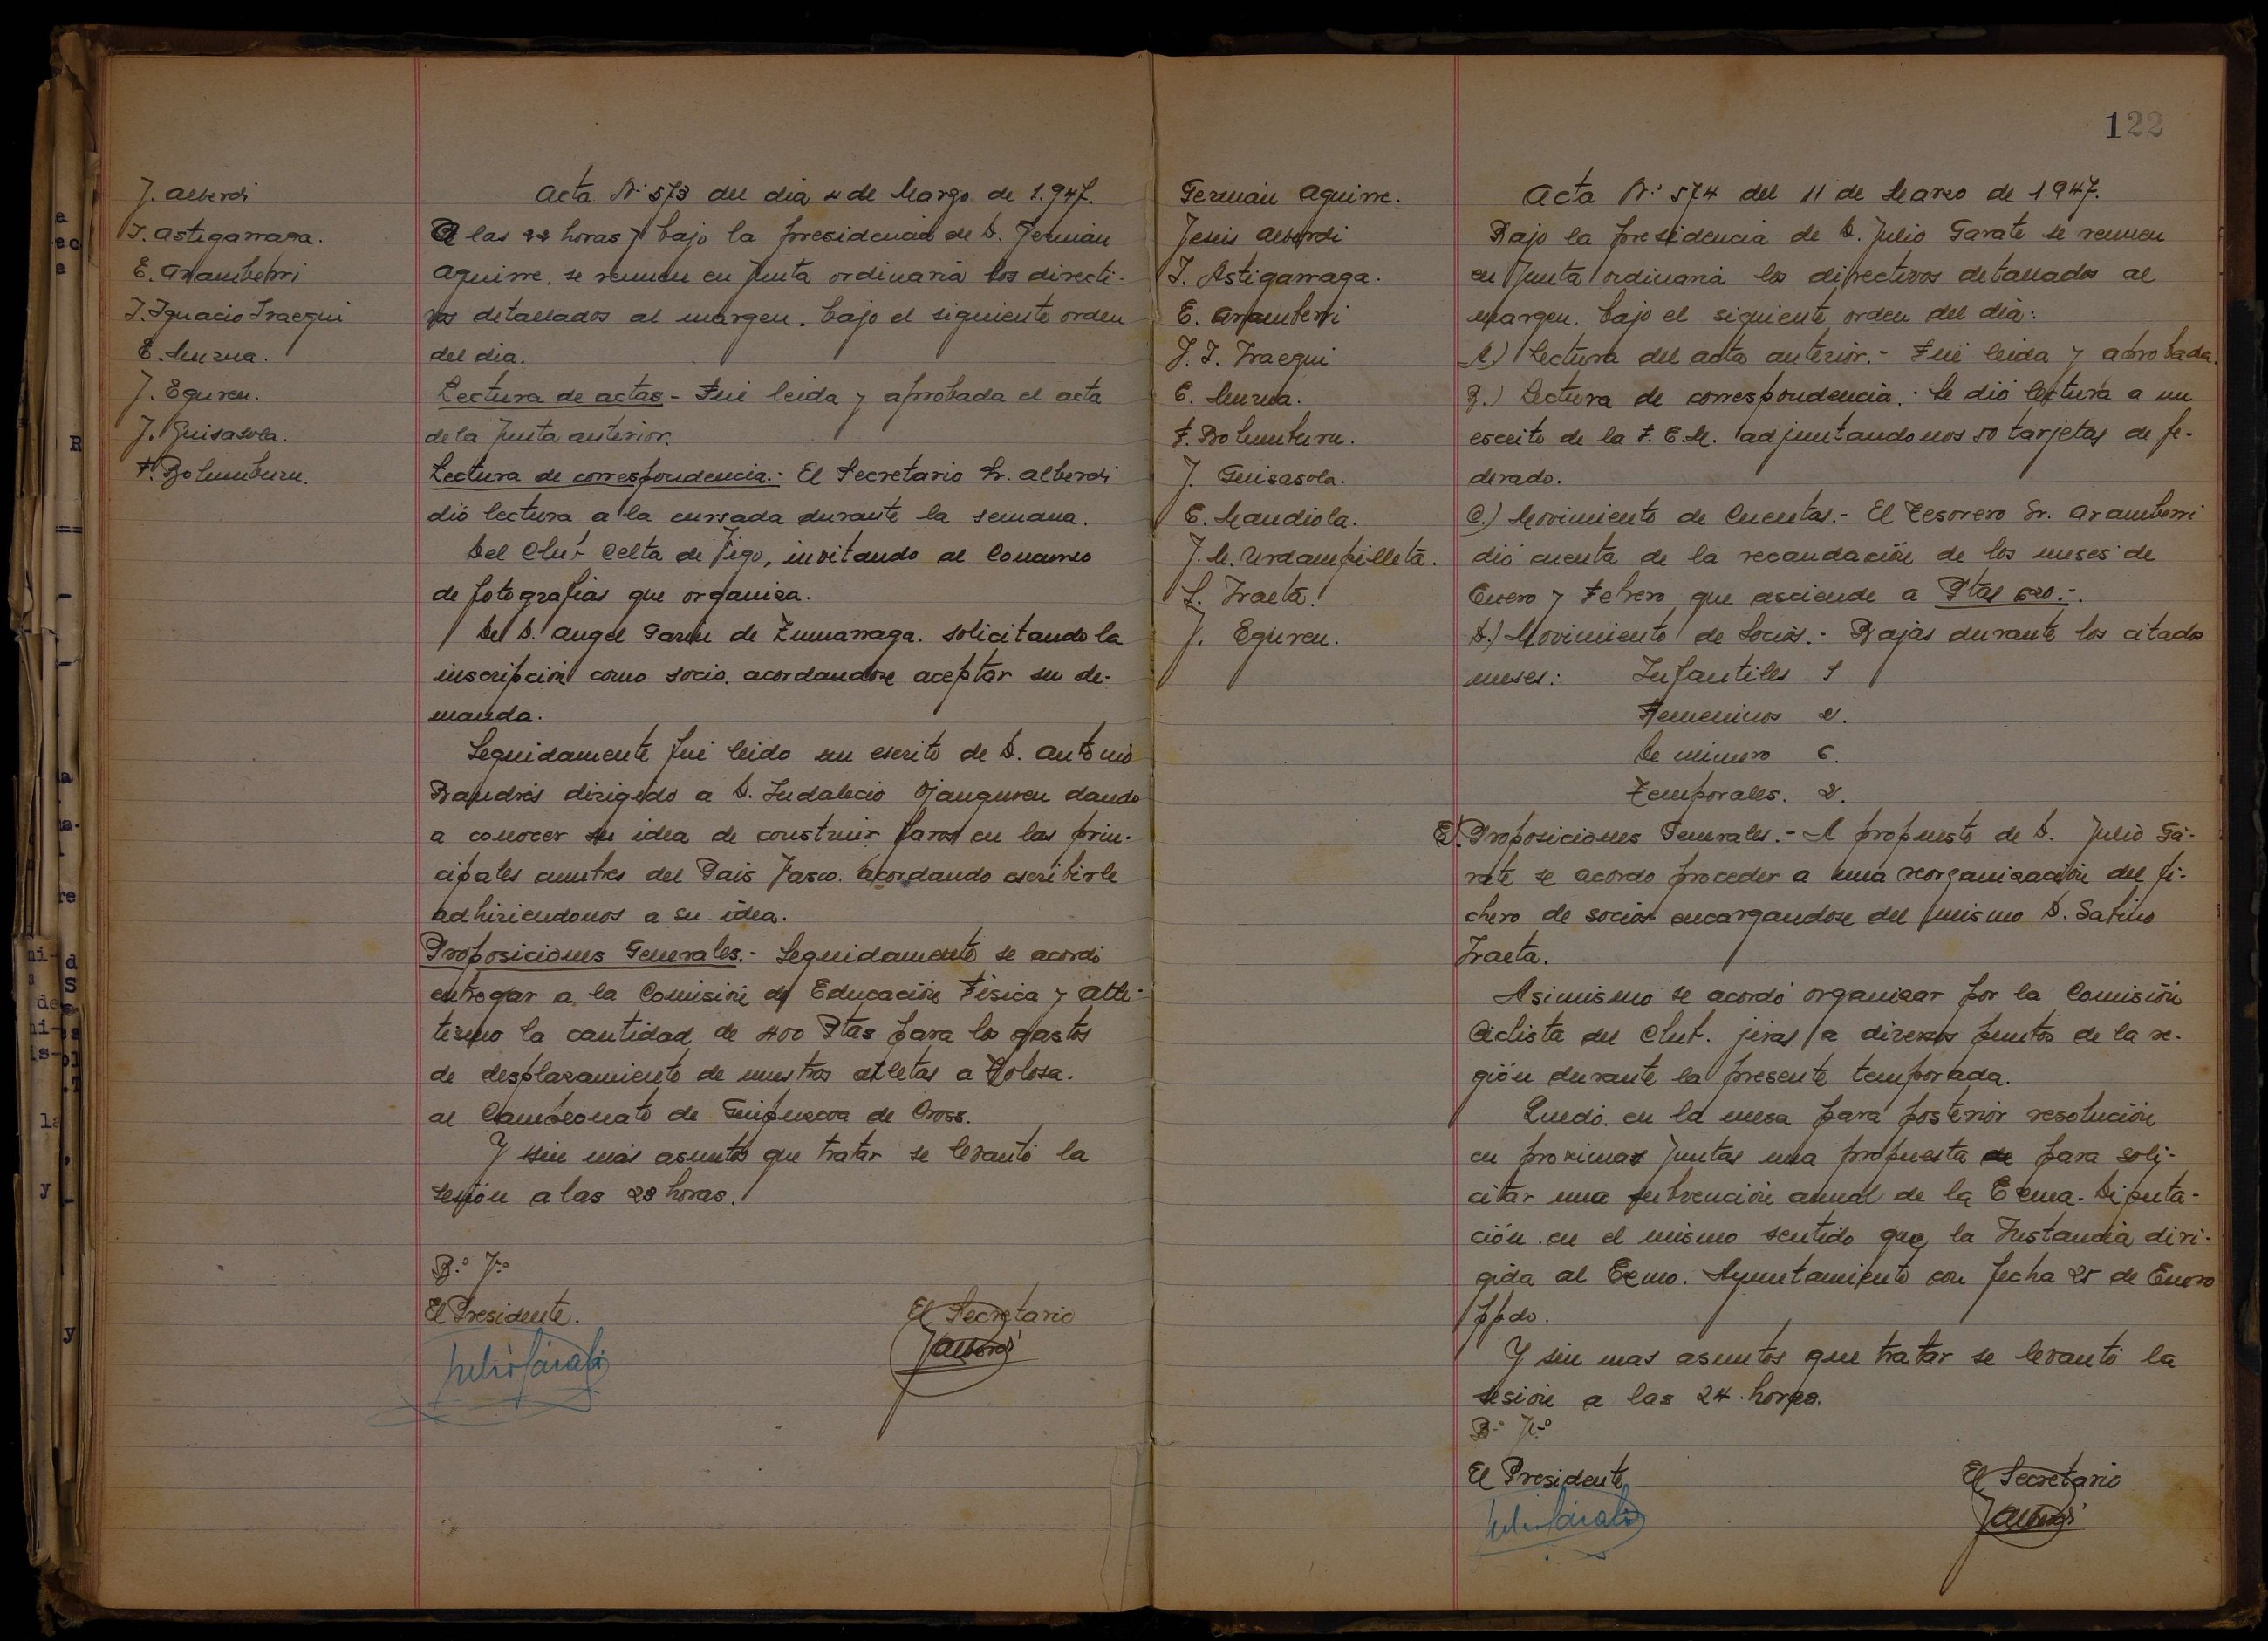 J. Alberdi
I. Astigarraga.
E. Aramberri
J. Ignacio Iraegui
E. Murua.
J. Eguren.
J. Guisasola.
F. Bolumburu.
Acta Nº 573 del dia 4 de Marzo de 1.947.
A las 22 horas y bajo la presidencia de D. Jermán
Aguirre, se reunen en Junta ordinaria los directi-
vos detallados al margen. bajo el siguiente orden
del dia.
Lectura de actas - Fué leida y aprobada el acta
de la Junta anterior.
Lectura de correspondencia.- El Secretario Sr. Alberdi
dió lectura a la cursada durante la semana.
Del Club Celta de Vigo, invitando al Concurso
de fotografias que organiza.
De D. Angel Garin de Zumarraga. solicitando la
inscripción como socio. acordandose aceptar su de-
manda.
Seguidamente fué leido un escrito de D. Antonio
Bandrés dirigido a D. Indalecio Ojanguren dando
a conocer su idea de construir faros en las prin-
cipales cumbres del Pais Vasco. acordando escribirle
adhiriendonos a su idea.
Proposiciones Generales.- Seguidamente se acordó
entregar a la Comisión de Educación Fisica y Atle-
tismo la cantidad de 400 Ptas para los gastos
de desplazamiento de nuestros atletas a Tolosa.
al Campeonato de Guipuzcoa de Cross.
Y sin más asuntos que tratar se levantó la
sesión a las 23 horas.
B.º V.º
El Presidente.
El Secretario
Julio Gárate
J Alberdi
122
German Aguirre.
Jesús Alberdi
I. Astigarraga.
E. Aramberri
J. I. Iraegui
E. Murua.
F. Bolumburu.
J. Guisasola.
E. Mandiola.
J. M. Urdampilleta.
S. Iraeta.
J. Eguren.
Acta Nº 574 del 11 de Marzo de 1.947.
Bajo la presidencia de D. Julio Garate se reunen
en Junta ordinaria los directivos detallados al
margen. bajo el siguiente orden del dia:
A.) Lectura del acta anterior.- Fué leida y aprobada.
B.) Lectura de correspondencia.- Se dió lectura a un
escrito de la F.E.M. adjuntandonos 50 tarjetas de fe-
derado.
C.) Movimiento de Cuentas.- El Tesorero Sr. Aramberri
dió cuenta de la recaudación de los meses de
Enero y Febrero que asciende a Ptas 620.-.
D.) Movimiento de Socios.- Bajas durante los citados
meses: Infantiles 1
Femeninos 2.
De número 6.
Temporales. 2.
E). Proposiciones Generales.- A propuesto de D. Julio Gá-
rate se acordo proceder a una reorganización del fi-
chero de socios encargandose del mismo D. Sabino
Iraeta.
Asimismo se acordó organizar por la Comisión
Ciclista del Club. jiras a diversos puntos de la re-
gión durante la presente temporada.
Quedó. en la mesa para posterior resolución
en proximas Juntas una propuesta de para soli-
citar una subvención anual de la Exma. Diputa-
ción. en el mismo sentido que la Instancia diri-
gida al Exmo. Ayuntamiento con fecha 25 de Enero
ppdo.
Y sin mas asuntos que tratar se levantó la
sesión a las 24 horas.
B.º V.º
El Presidente
El Secretario
Julio Gárate
J Alberdi